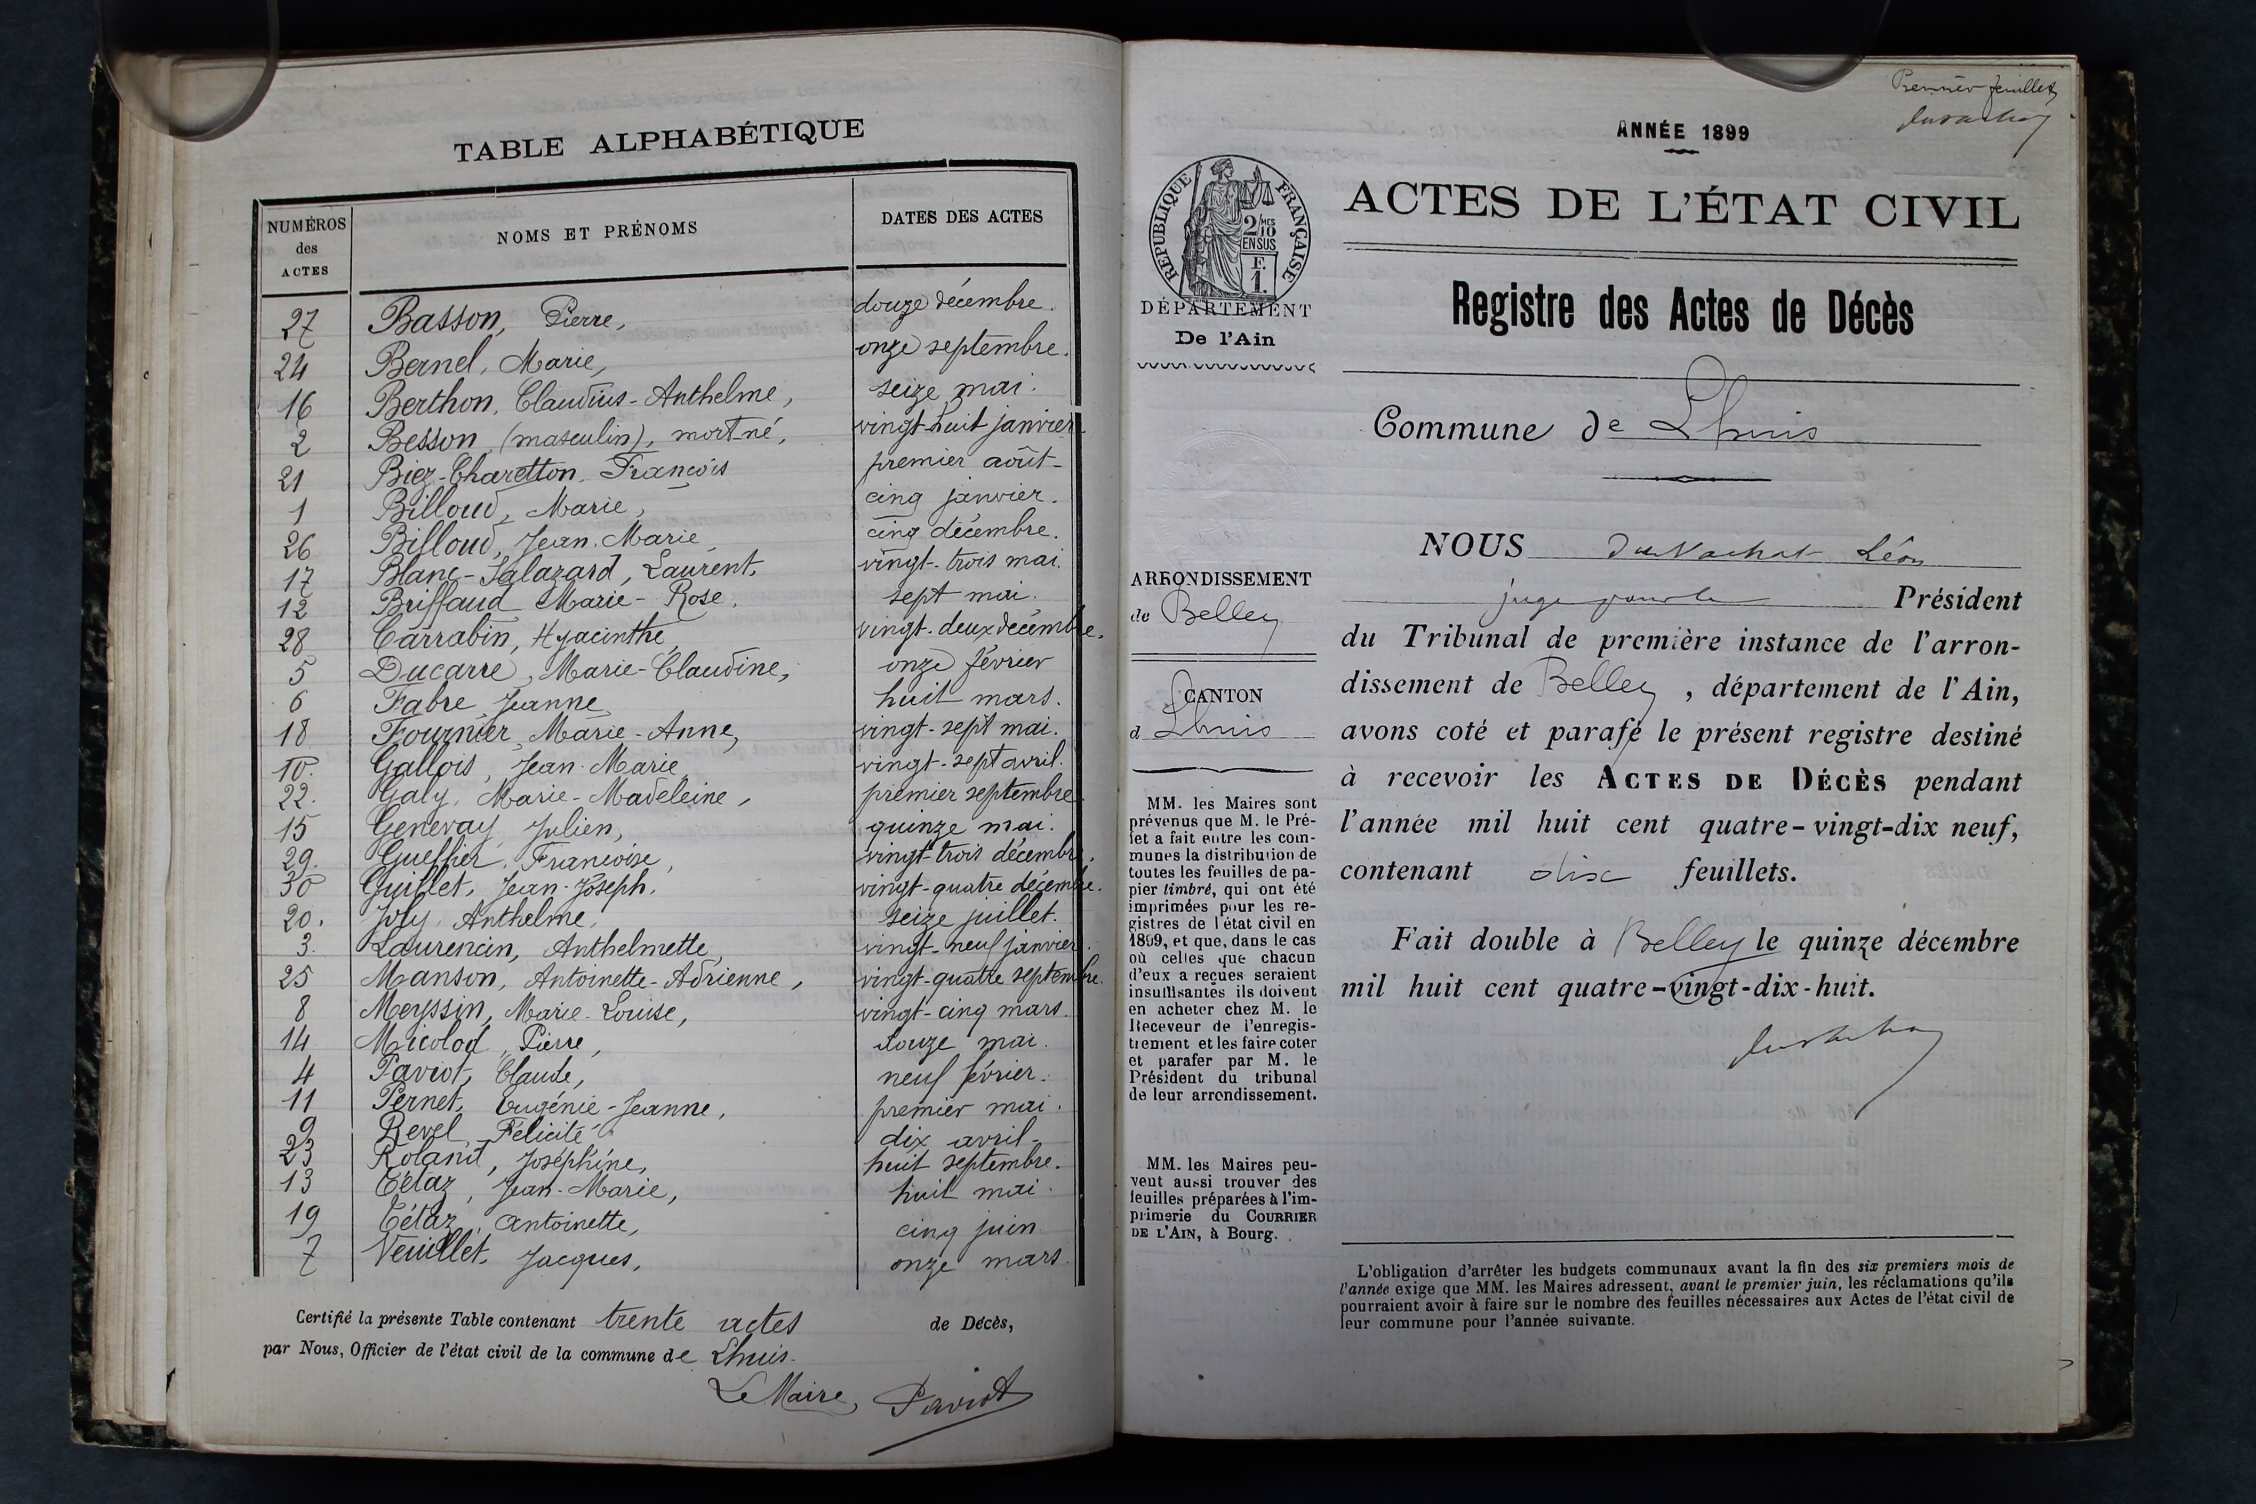 TABLE ALPHABÉTIQUE
NUMÉROS des ACTES
NOMS ET PRÉNOMS
DATES DES ACTES
27 Basson, Pierre, douze décembre.
24 Bernel, Marie, onze septembre.
16 Berthon, Claudius-Anthelme, seize mai.
2 Besson (masculin), mort-né, vingt-huit janvier
21 Biez-Charetton, François premier août-
1 Billoud, Marie, cinq janvier.
26 Billoud, Jean-Marie cinq décembre.
17 Blanc-Jalazard, Laurent, vingt-trois mai.
12 Briffaud Marie-Rose. sept mai.
28 Carrabin, Hyacinthe, vingt-deux décembre.
5 Ducarre, Marie-Claudine, onze février
6 Fabre Jeanne huit mars.
18 Fournier, Marie-Anne, vingt-sept mai.
10. Gallois, Jean-Marie vingt-sept avril.
22. Galy, Marie-Madeleine, premier septembre
15 Genevay Julien, quinze mai.
29. Gueffier, Françoise, vingt-trois décembre.
30 Guillet, Jean-Joseph. vingt-quatre décembre.
20. Joly, Anthelme, seize juillet.
3. Laurencin, Anthelmette vingt-neuf janvier.
25 Manson, Antoinette-Adrienne, vingt-quatre septembre.
8 Meyssin, Marie-Louise, vingt-cinq mars.
14 Micolod, Pierre, douze mai.
4 Paviot, Claude, neuf février.
11 Pernet, Eugénie-Jeanne, premier mai.
9 Revel, Félicité dix avril-
23 Roland, Joséphine, huit septembre.
13 Tétaz, Jean-Marie, huit mai.
19 Tétaz, Antoinette, cinq juin
7 Veuillet, Jacques, onze mars.
Certifié la présente Table contenant trente actes de Décès,
par Nous, Officier de l'état civil de la commune de Lhuis.
Le Maire, Paviot
Premier feuillet
ANNÉE 1899
ACTES DE L'ÉTAT CIVIL
RÉPUBLIQUE FRANÇAISE
2/10 MES
EN SUS
F.
1.
DÉPARTEMENT
De l'Ain
Registre des Actes de Décès
Commune de Lhuis
ARRONDISSEMENT
de Belley
CANTON
d Lhuis
MM. les Maires sont
prévenus que M. le Pré-
fet a fait entre les com-
munes la distribution de
toutes les feuilles de pa-
pier timbré, qui ont été
imprimées pour les re-
gistres de l'état civil en
1899, et que, dans le cas
où celles que chacun
d'eux a reçues seraient
insuffisantes ils doivent
en acheter chez M. le
Receveur de l'enregis-
trement et les faire coter
et parafer par M. le
Président du tribunal
de leur arrondissement.
MM. les Maires peu-
vent aussi trouver des
feuilles préparées à l'im-
primerie du COURRIER
DE L'AIN, à Bourg.
NOUS Duvachat Léon
juge pour le Président
du Tribunal de première instance de l'arron-
dissement de Belley, département de l'Ain,
avons coté et parafé le présent registre destiné
à recevoir les ACTES DE DÉCÈS pendant
l'année mil huit cent quatre-vingt-dix neuf,
contenant dix feuillets.
Fait double à Belley le quinze décembre
mil huit cent quatre-vingt-dix-huit.
L'obligation d'arrêter les budgets communaux avant la fin des six premiers mois de
l'année exige que MM. les Maires adressent, avant le premier juin, les réclamations qu'ils
pourraient avoir à faire sur le nombre des feuilles nécessaires aux Actes de l'état civil de
leur commune pour l'année suivante.